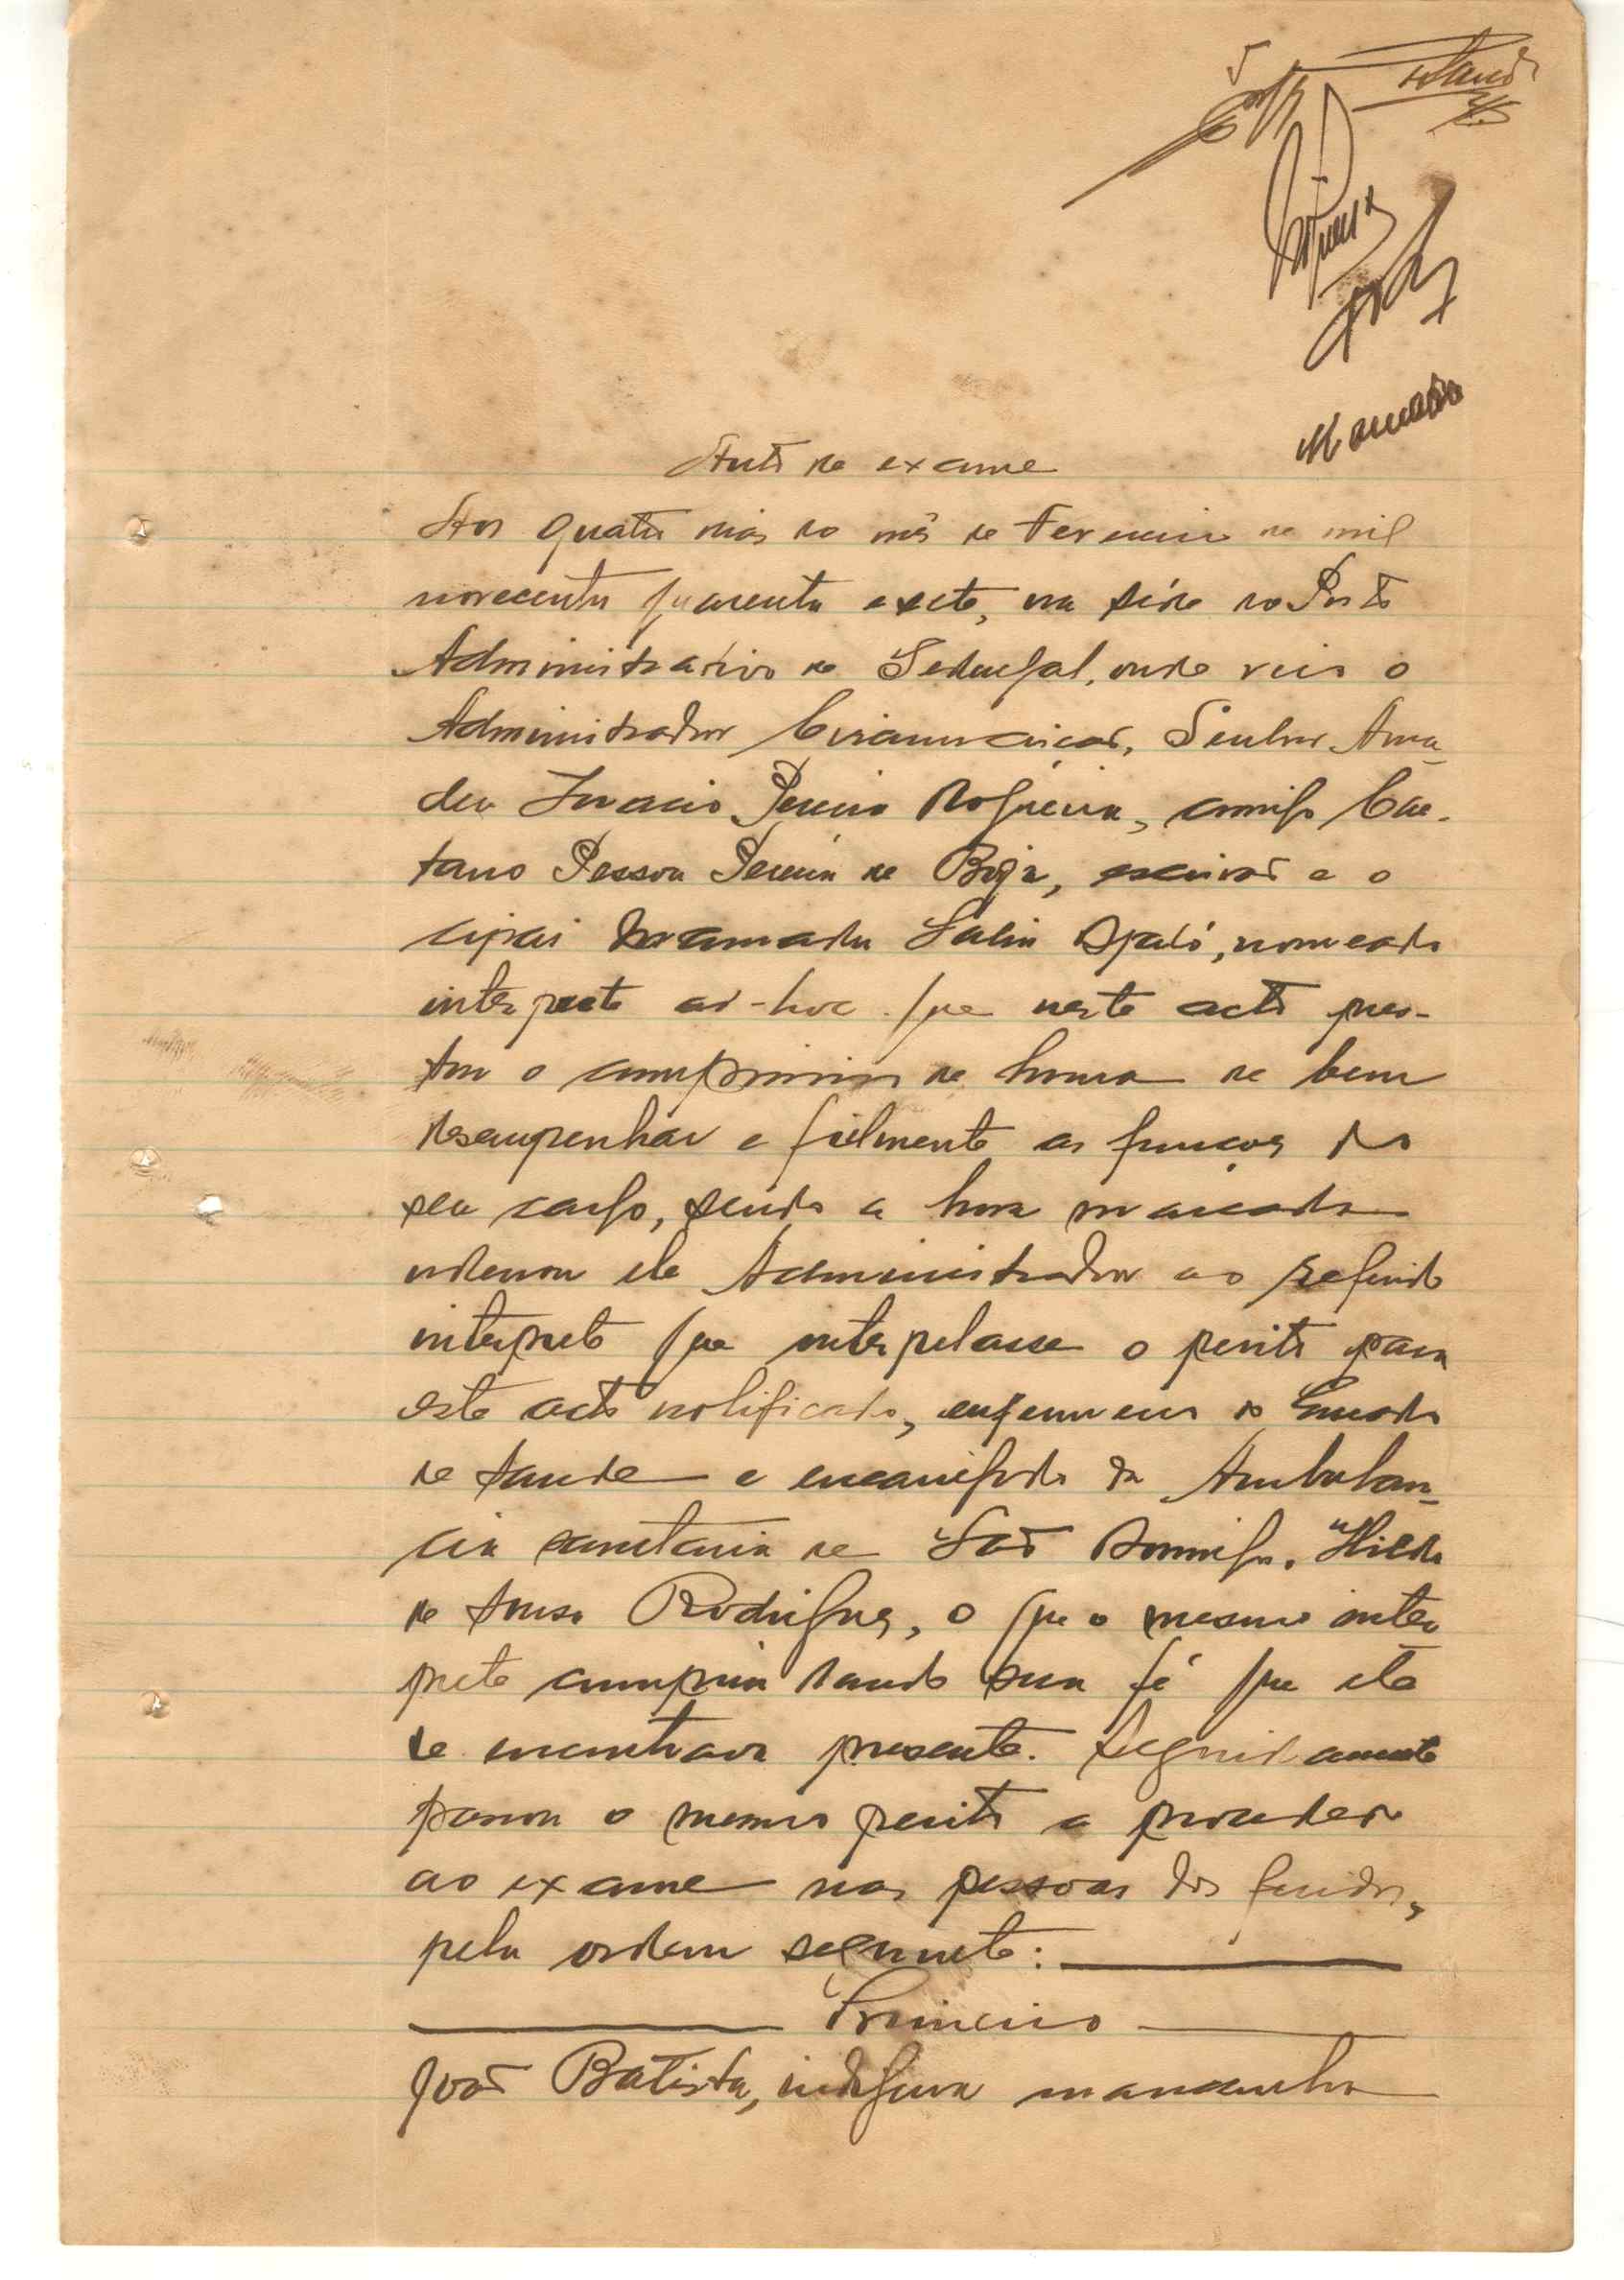 5
Auto de exame
Aos quatro dias do mês de Fevereiro de mil
novecentos quarenta e sete, na séde do Posto
Administrativo de Sedengal, onde veio o
Administrador Circunscrição, Senhor Ama-
deu Inacio Pereira Nogueira, comigo Cae-
tano Pessoa Pereira de Borja, escrivão e o
cipai Mamadu Saliu Djaló, nomeado
interprete ad-hoc que neste acto pres-
tou o compromisso de honra de bem
desempenhar e fielmente as funções do
seu cargo, sendo a hora marcada
ordenou ele Administrador ao referido
interprete que interpelasse o perito para
este acto notificado, enfermeiro do Quadro
de Saude e encarregado da Ambulan-
cia sanitaria de São Domingos, Hildo
de Sousa Rodrigues, o que o mesmo inter
prete cumpriu dando sua fé que ele
se encontrava presente. Seguidamente
passou o mesmo perito a proceder
ao exame nas pessoas dos feridos,
pela ordem seguinte:
Primeiro
João Batista, indigena mancanha